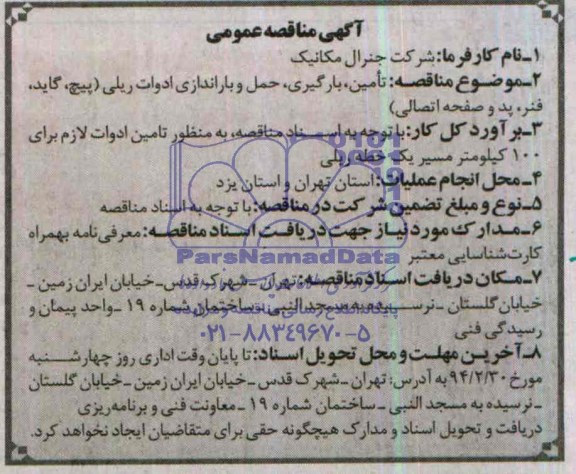 آگهی مناقصه عمومی
۱ـ نام کارفرما: شرکت جنرال مکانیک
۲ـ موضوع مناقصه: تأمین، بارگیری، حمل و باراندازی ادوات ریلی (پیچ، گاید،
فنر، پد و صفحه اتصالی)
۳ـ برآورد کل کار: با توجه به اسناد مناقصه، به منظور تامین ادوات لازم برای
۱۰۰ کیلومتر مسیر یک خطه ریلی
۴ـ محل انجام عملیات: استان تهران و استان یزد
۵ـ نوع و مبلغ تضمین شرکت در مناقصه: با توجه به اسناد مناقصه
۶ـ مدارک مورد نیاز جهت دریافت اسناد مناقصه: معرفی‌نامه بهمراه
کارت شناسایی معتبر
ParsNamadData
۷ـ مکان دریافت اسناد مناقصه: تهران ـ شهرک قدس ـ خیابان ایران زمین ـ
خیابان گلستان ـ نرسیده به مسجد النبی ـ ساختمان شماره ۱۹ ـ واحد پیمان و
رسیدگی فنی
۰۲۱-۸۸۳۴۹۶۷۰-۵
۸ـ آخرین مهلت و محل تحویل اسناد: تا پایان وقت اداری روز چهارشنبه
مورخ ۹۴/۲/۳۰ به آدرس: تهران ـ شهرک قدس ـ خیابان ایران زمین ـ خیابان گلستان
ـ نرسیده به مسجد النبی ـ ساختمان شماره ۱۹ ـ معاونت فنی و برنامه‌ریزی
دریافت و تحویل اسناد و مدارک هیچگونه حقی برای متقاضیان ایجاد نخواهد کرد.